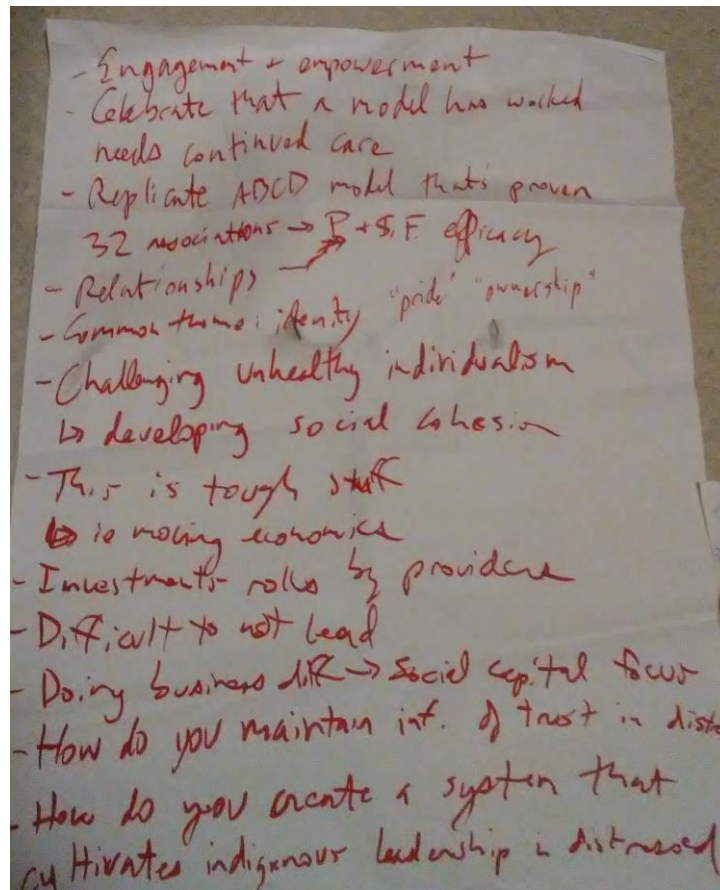 - Engagement + empowerment
- Celebrate that a model has worked
needs continued care
- Replicate ABCD model that's proven
32 associations → P + S.F. efficacy
- Relationships →
- Common theme: idenity "pride" "ownership"
- Challenging unhealthy individualism
↳ developing social cohesion
- This is tough stuff
↳ ie moving economics
- Investments - roles by providers
- Difficult to not lead
- Doing business diff → Social capital focus
- How do you maintain inf. of trust in dist
- How do you create a system that
cultivates indigenous leadership in distressed